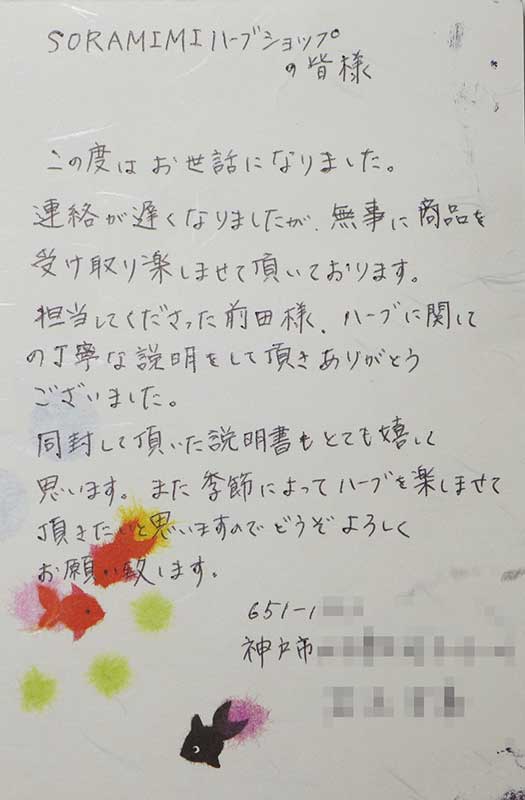 SORAMIMIハーブショップ
の皆様
この度はお世話になりました。
連絡が遅くなりましたが、無事に商品を
受け取り楽しませて頂いております。
担当してくださった前田様、ハーブに関して
の丁寧な説明をして頂きありがとう
ございました。
同封して頂いた説明書もとても嬉しく
思います。また季節によってハーブを楽しませて
頂きたいと思いますのでどうぞよろしく
お願い致します。
651-1
神戸市